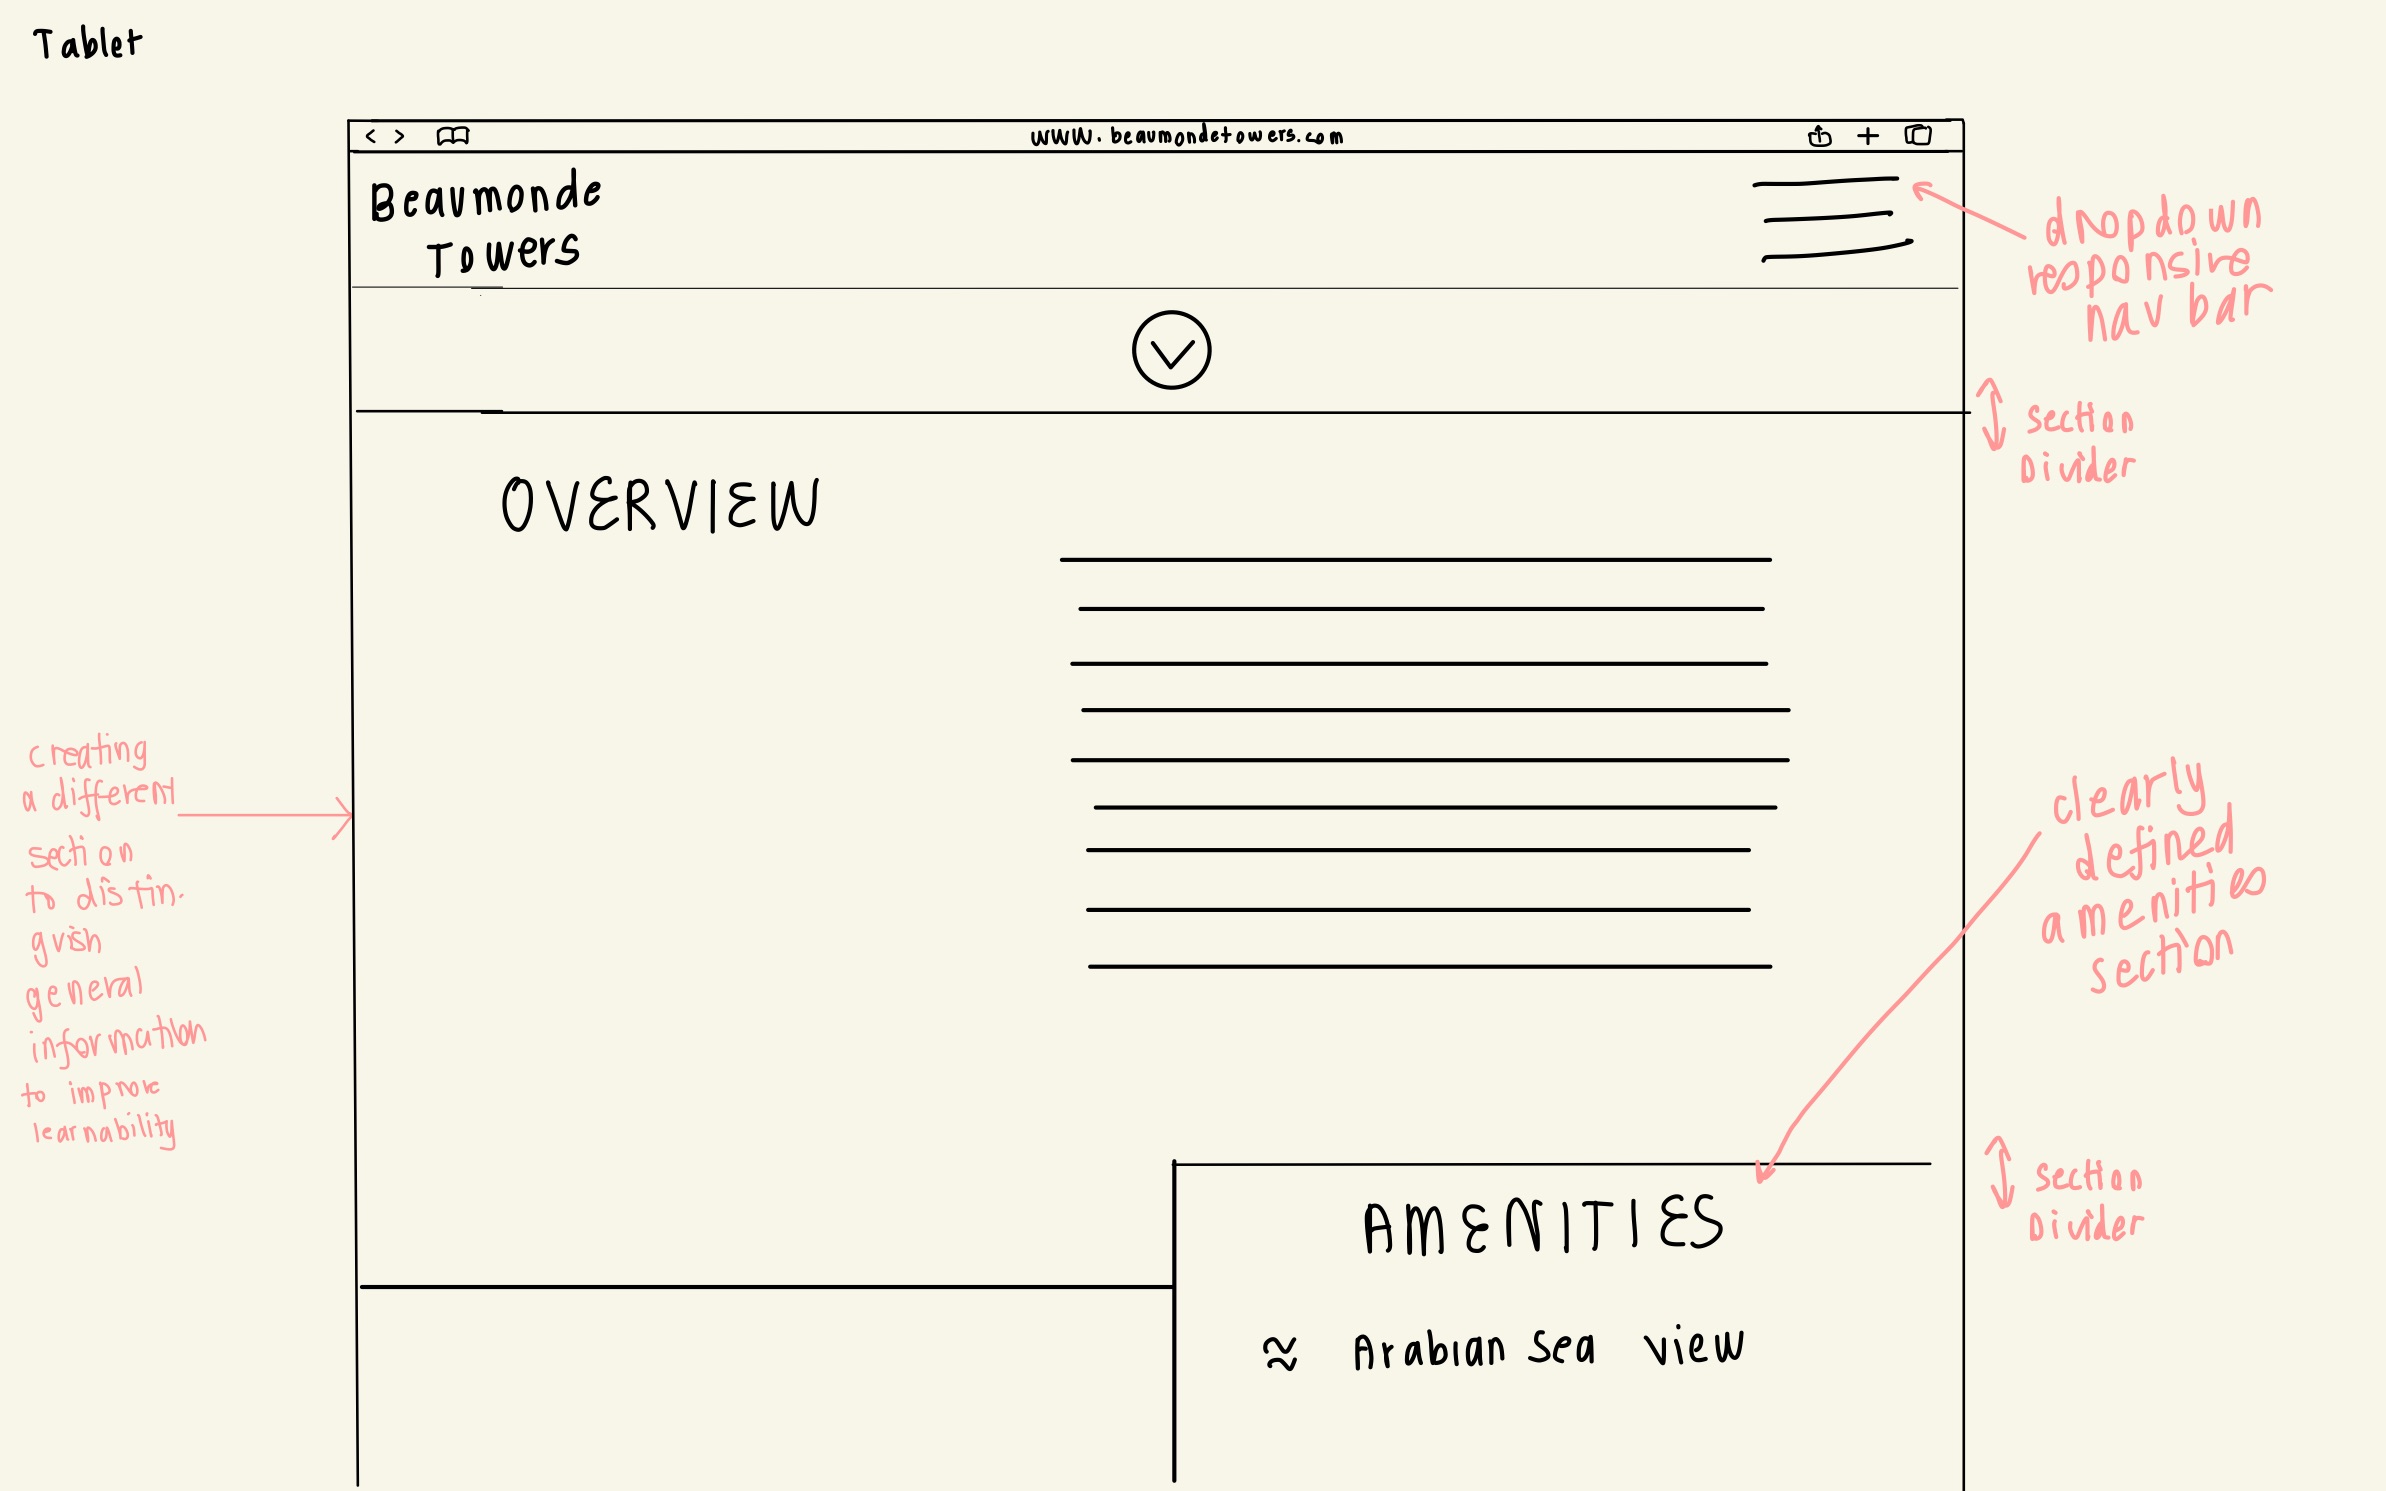 Tablet
www.beaumondetowers.com
Beaumonde
Towers
dropdown
responsive
nav bar
section
Divider
OVERVIEW
creating
a different
section
to distin.
guish
general
information
to improve
learnability
clearly
defined
amenities
section
section
Divider
AMENITIES
≈ Arabian Sea view